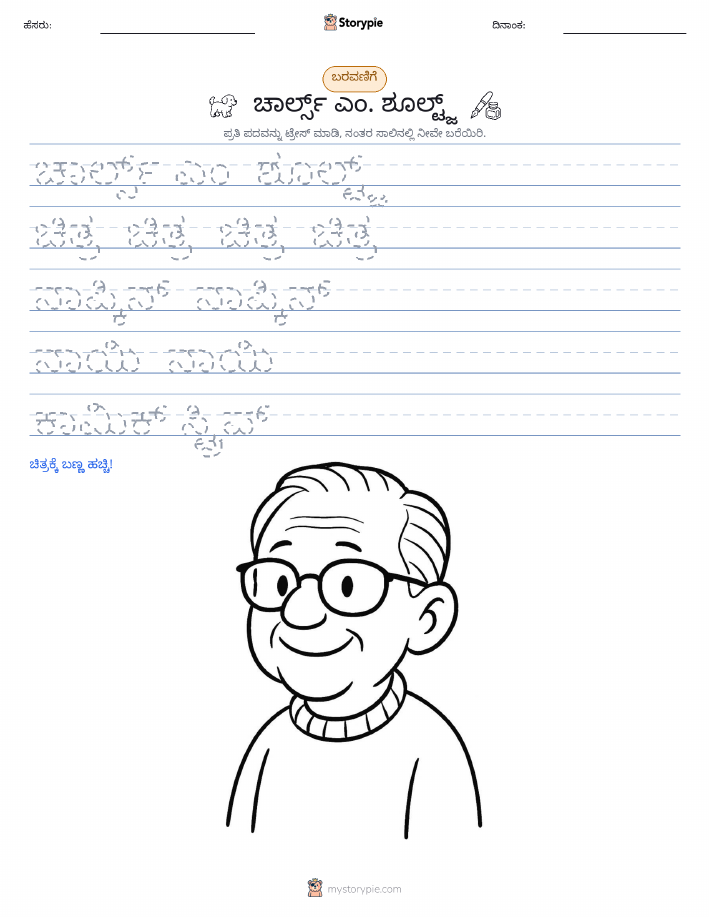 ಹೆಸರು:
Storypie
ದಿನಾಂಕ:
ಬರವಣಿಗೆ
ಚಾರ್ಲ್ಸ್ ಎಂ. ಶೂಲ್ಟ್ಜ್
ಪ್ರತಿ ಪದವನ್ನು ಟ್ರೇಸ್ ಮಾಡಿ, ನಂತರ ಸಾಲಿನಲ್ಲಿ ನೀವೇ ಬರೆಯಿರಿ.
ಚಾರ್ಲ್ಸ್ ಎಂ ಶೂಲ್ಟ್ಜ್
ಚಿತ್ರ ಚಿತ್ರ ಚಿತ್ರ ಚಿತ್ರ
ನಾಪ್ಕಿನ್ ನಾಪ್ಕಿನ್
ನಾಯಿ ನಾಯಿ
ಕಾಮಿಕ್ ಸ್ಟ್ರಿಪ್
ಚಿತ್ರಕ್ಕೆ ಬಣ್ಣ ಹಚ್ಚಿ!
mystorypie.com